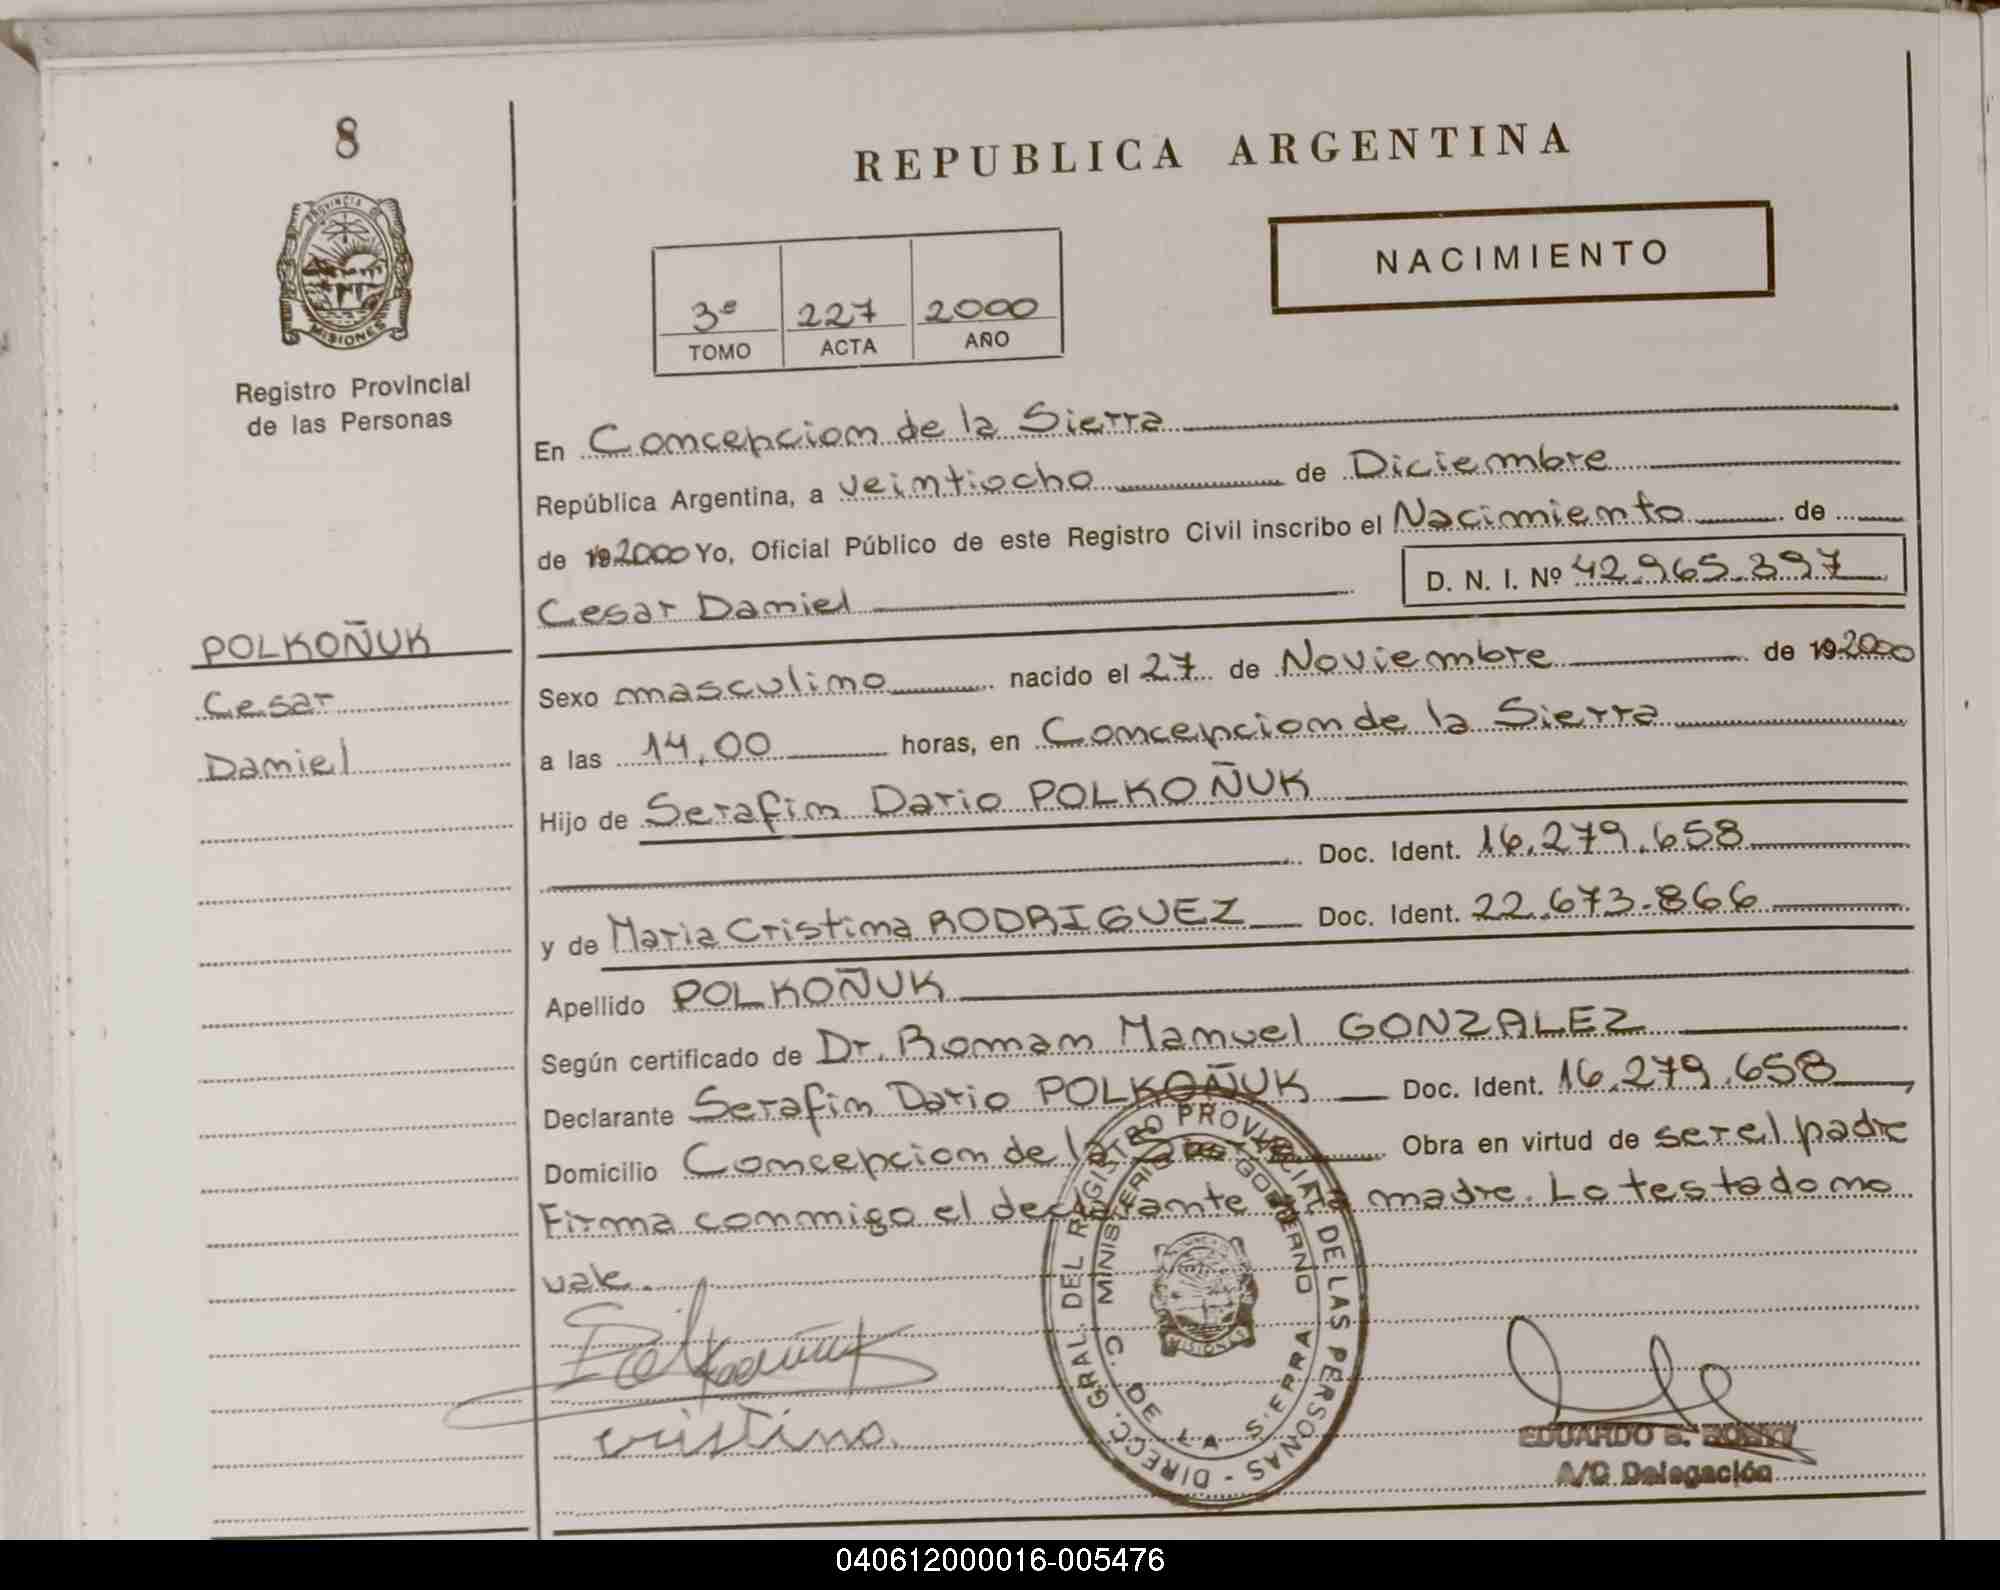 8
PROVINCIA DE
MISIONES
Registro Provincial
de las Personas
POLKOÑUK
Cesar
Daniel
REPUBLICA ARGENTINA
NACIMIENTO
3º 227 2000
TOMO ACTA AÑO
En Concepcion de la Sierra
República Argentina, a veintiocho de Diciembre
de 192000 Yo, Oficial Público de este Registro Civil inscribo el Nacimiento de
Cesar Daniel D. N. I. Nº 42.965.397
Sexo masculino nacido el 27 de Noviembre de 192000
a las 14,00 horas, en Concepcion de la Sierra
Hijo de Serafin Dario POLKOÑUK
Doc. Ident. 16.279.658
y de Maria Cristina RODRIGUEZ Doc. Ident. 22.673.866
Apellido POLKOÑUK
Según certificado de Dr. Roman Manuel GONZALEZ
Declarante Serafin Dario POLKOÑUK Doc. Ident. 16.279.658
Domicilio Concepcion de la Sierra Obra en virtud de ser el padre
Firma conmigo el declarante y la madre. Lo testado no
vale.
DIRECC. GRAL. DEL REGISTRO PROVINCIAL DE LAS PERSONAS -
MINISTERIO DE GOBIERNO
C. DE LA SIERRA
MISIONES
Polkoñuk
cristina.
EDUARDO B.
A/C Delegación
040612000016-005476